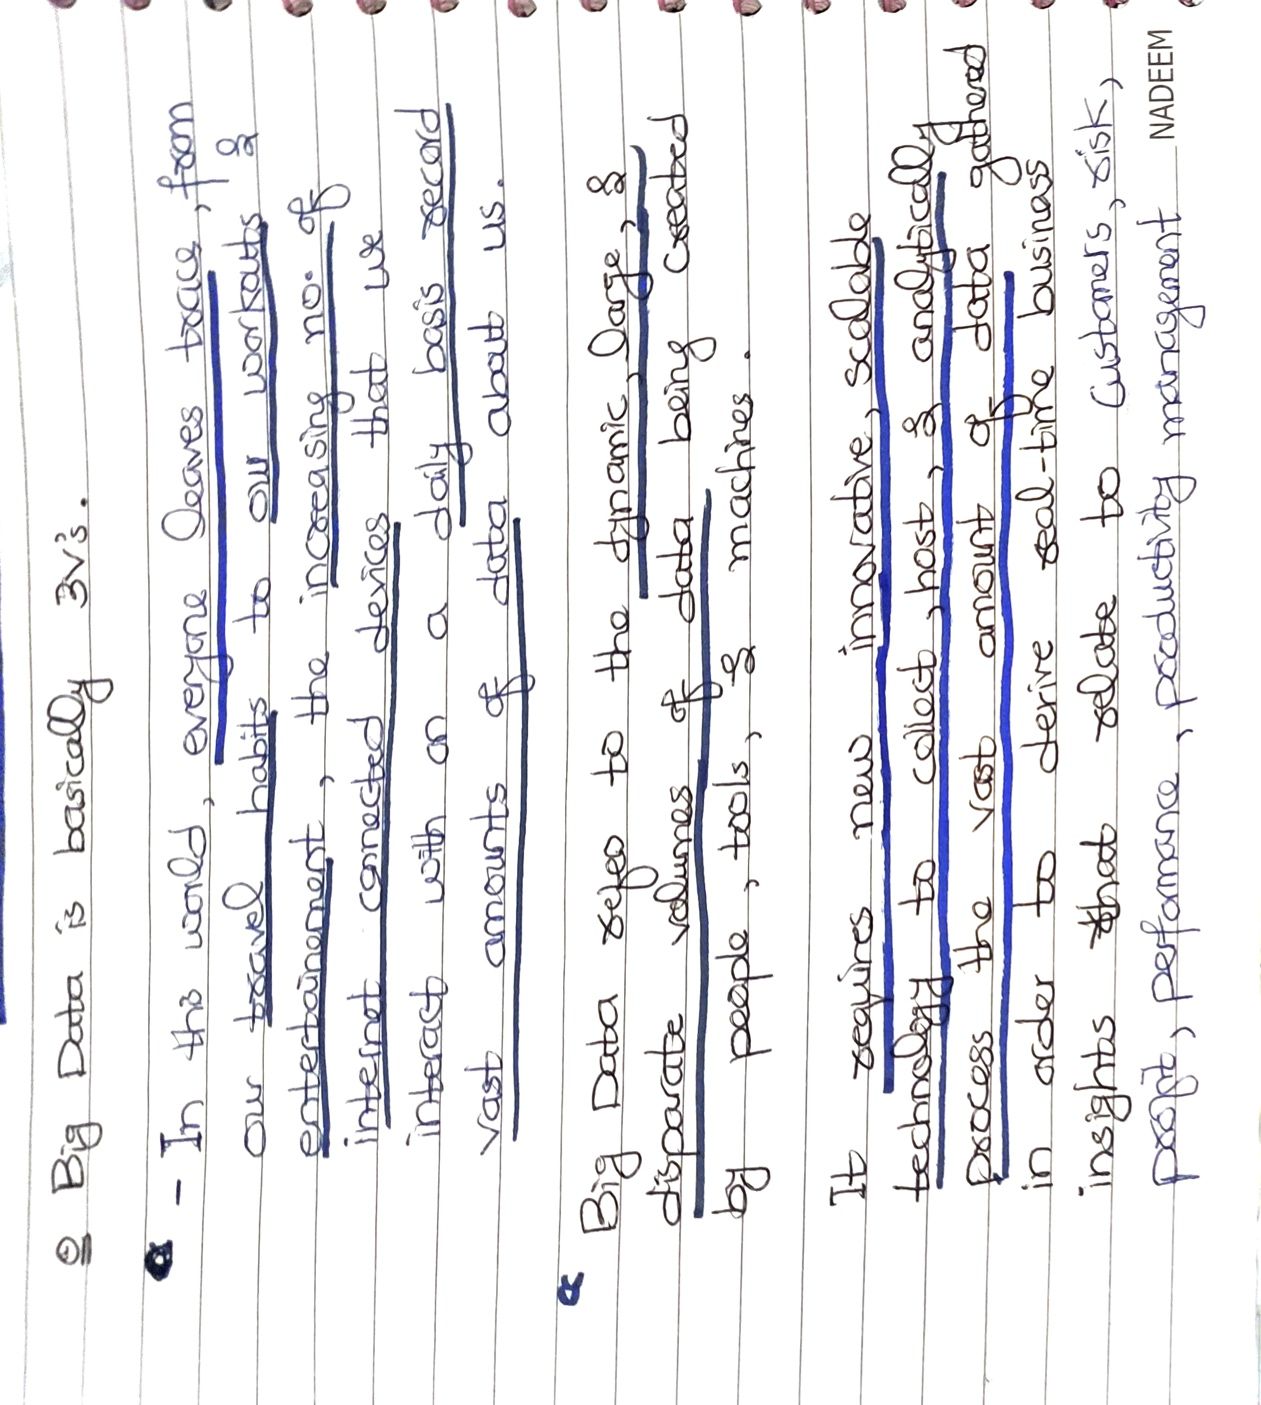 ① Big Data is basically 3V's.
- In this world, everyone leaves trace, from
our travel habits to our workouts &
entertainement, the increasing no. of
internet connected devices that we
interact with on a daily basis record
vast amounts of data about us.
Big Data refes to the dynamic, large, &
disparate volumes of data being created
by people, tools, & machines.
It requires new innovative, scalable
technology to collect, host, & analytically
process the vast amount of data gathered
in order to derive real-time business
insights that relate to customers, risk,
profit, performance, productivity management
NADEEM